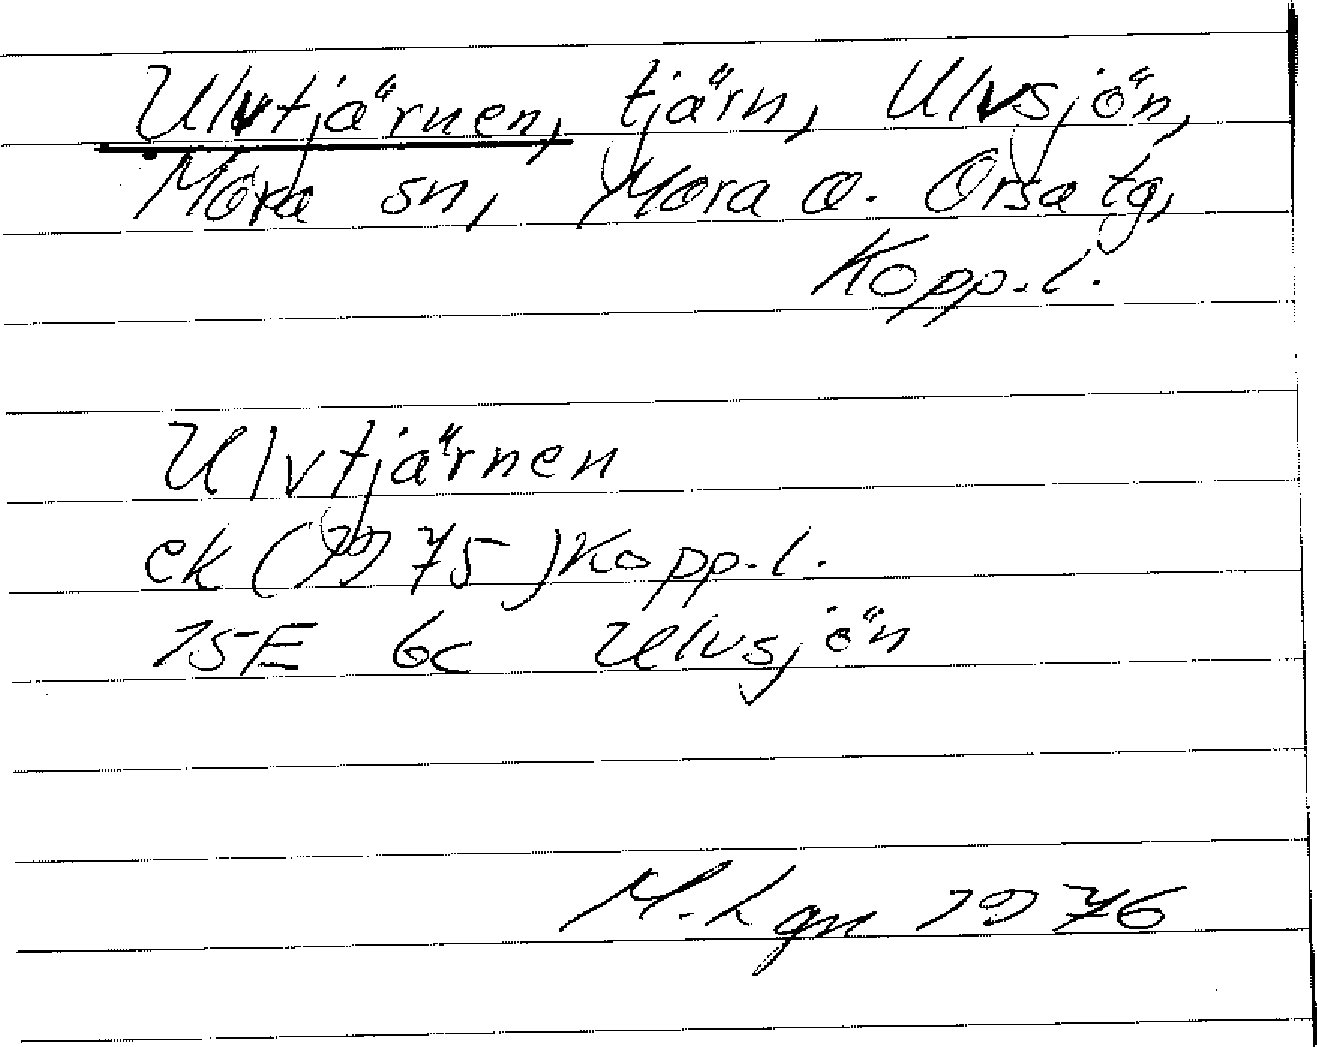 Ulvtjärnen, tjärn, Ulvsjön,
Mora sn, Mora o. Orsa tg,
Kopp.l.
Ulvtjärnen
ek (1975) Kopp.l.
15E 6c Ulvsjön
M. Lgn 1976